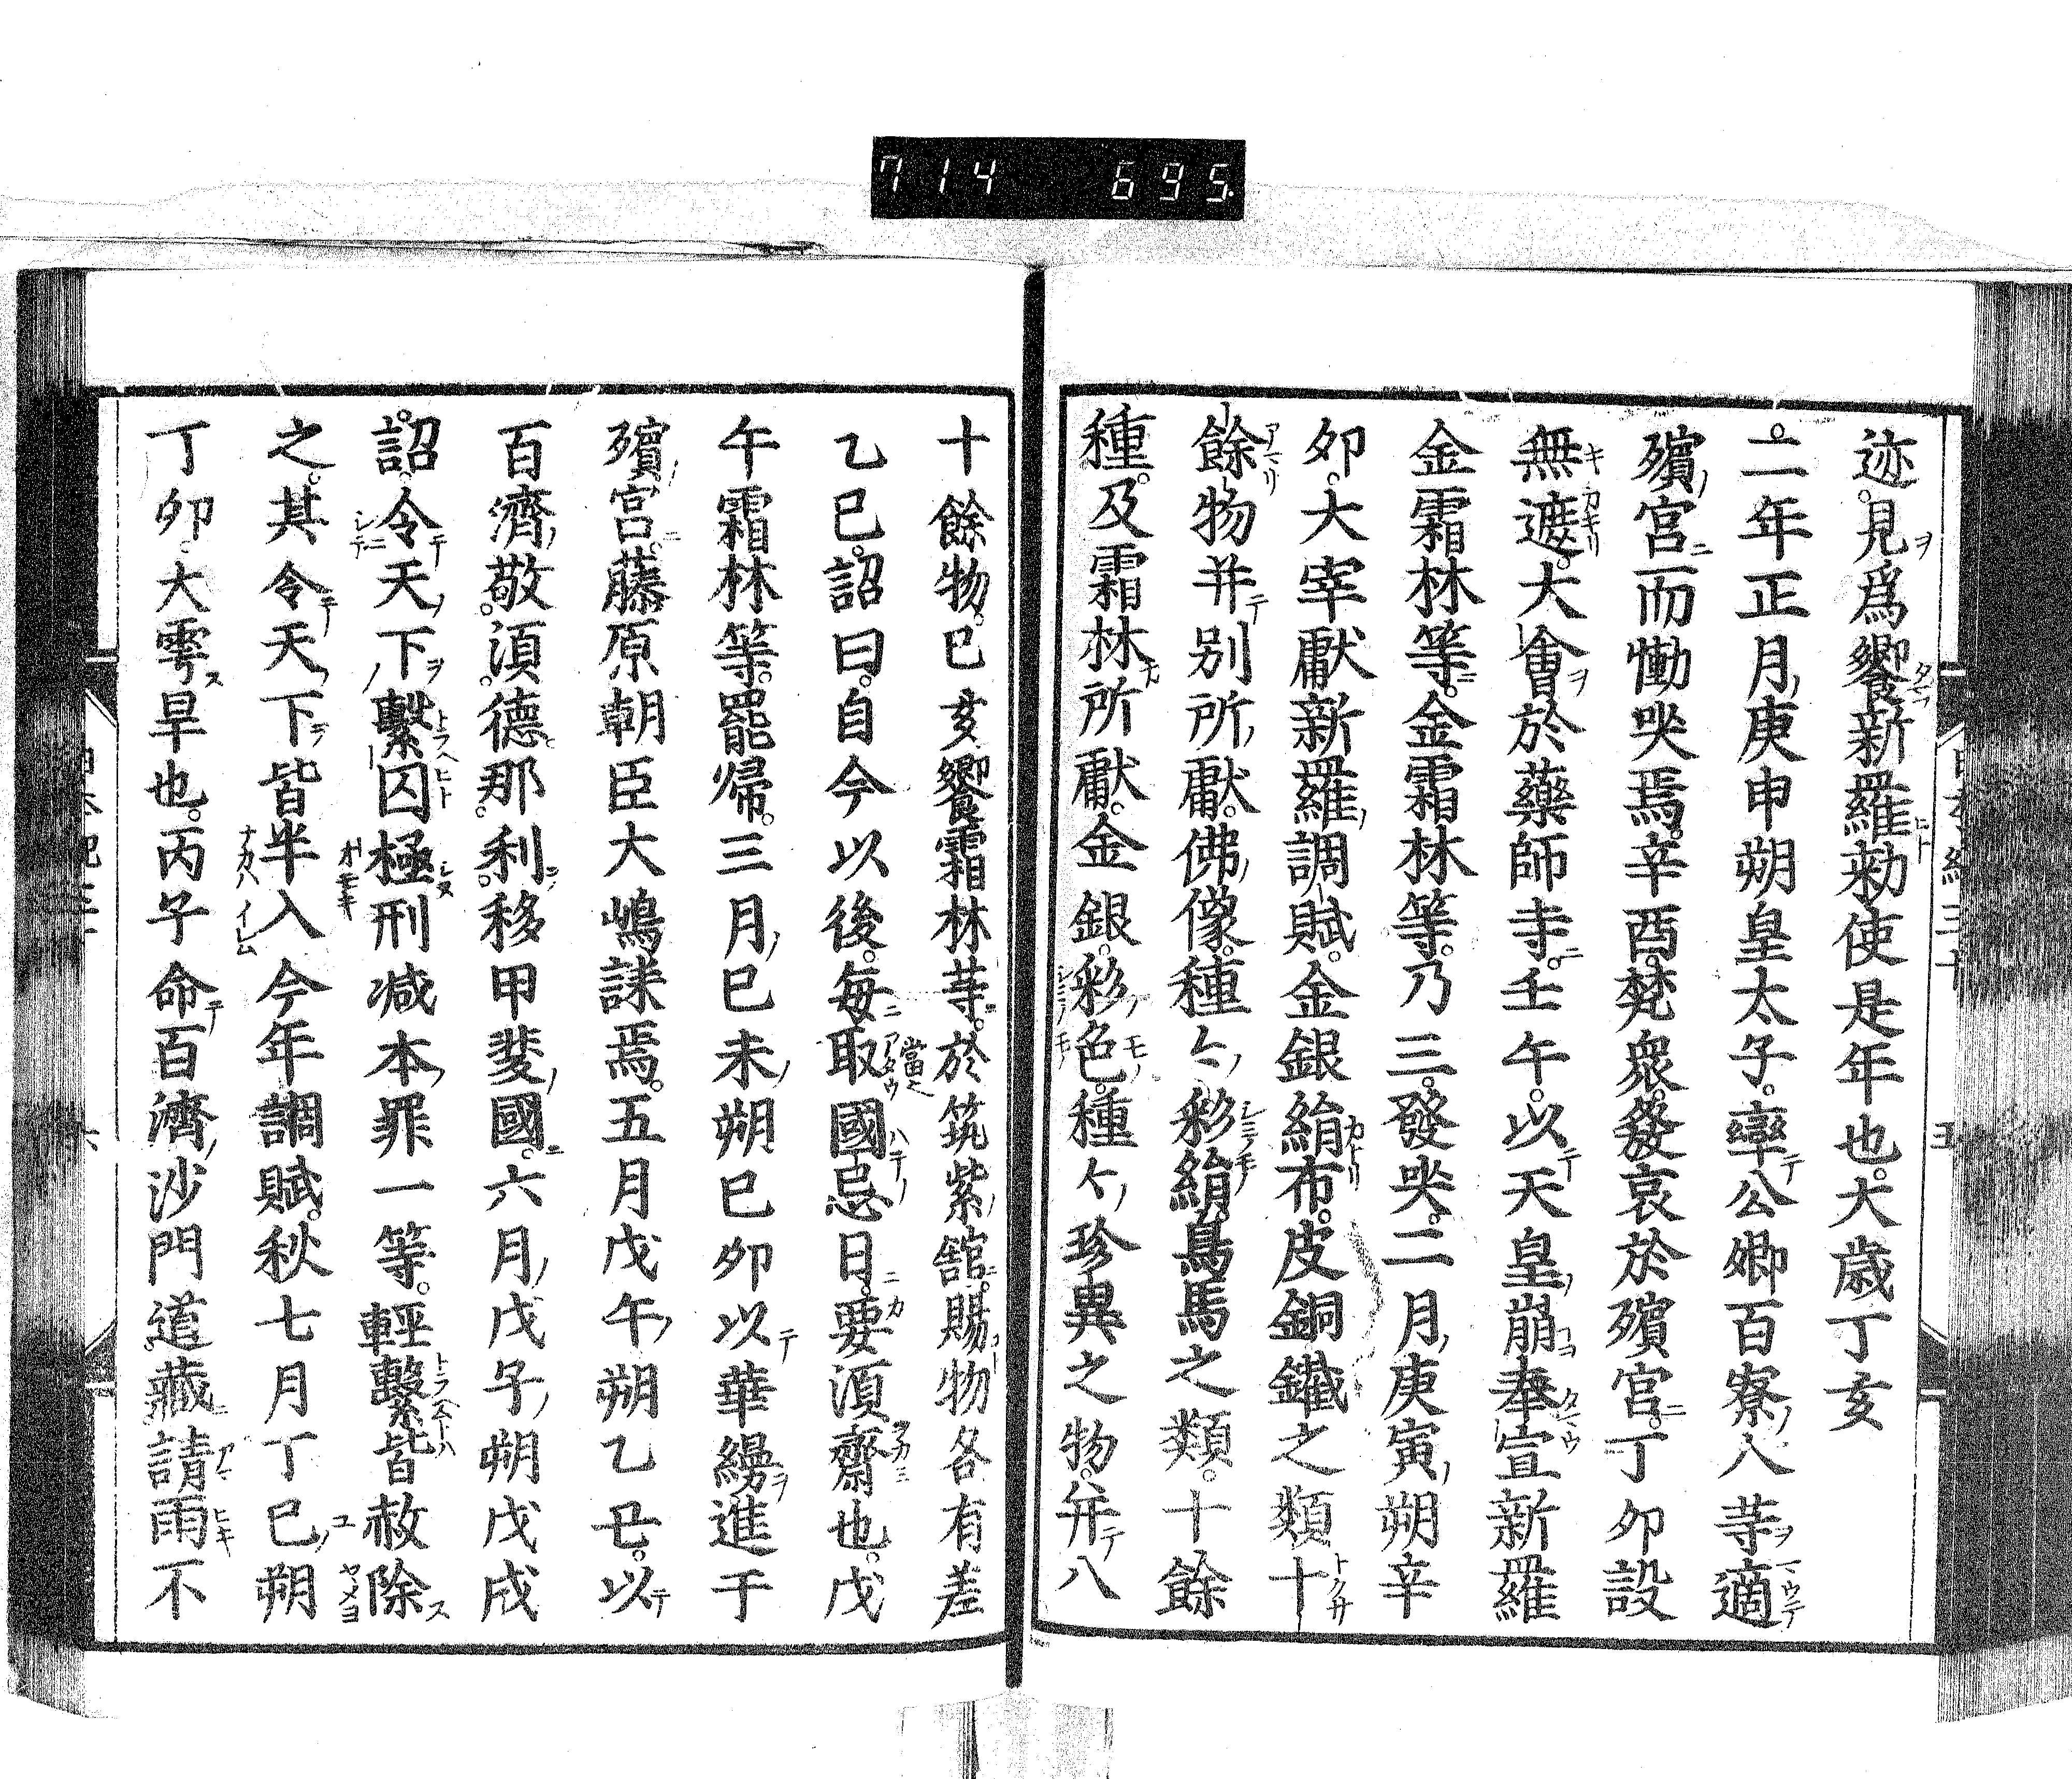 714 695.
迹。見爲饗新羅勅使是年也。大歳丁亥
二年正月庚申朔皇太子。率公卿百寮人䓁適
殯宮而慟哭焉。辛酉。梵衆。發哀於殯宮。丁卯設
無遮。大會於藥師寺。壬午。以天皇崩奉宣新羅
金霜林等。金霜林等。乃三。發哭。二月庚寅朔辛
卯。大宰獻新羅調賦。金銀絹布。皮銅鐵之類十
餘物并別所獻。佛像。種々彩絹。鳥馬之類。十餘
種。及霜林所獻。金銀。彩色。種々珍異之物。并八
十餘物。已亥饗霜林䓁。於筑紫館。賜物各有差
乙巳。詔曰。自今以後。每取國忌日。要須齋也。戊
午霜林等。罷歸。三月已未朔已卯以華縵進于
殯宮。藤原朝臣大嶋誄焉。五月戊午朔乙丑。以
百濟敬。須德。那利。移甲斐國。六月戊子朔戊戌
詔。令天下繫囚極刑减本罪一等。輕繫皆赦除
之。其令天下皆半入今年調賦。秋七月丁巳朔
丁卯大雩旱也。丙子命百濟沙門道藏請雨不